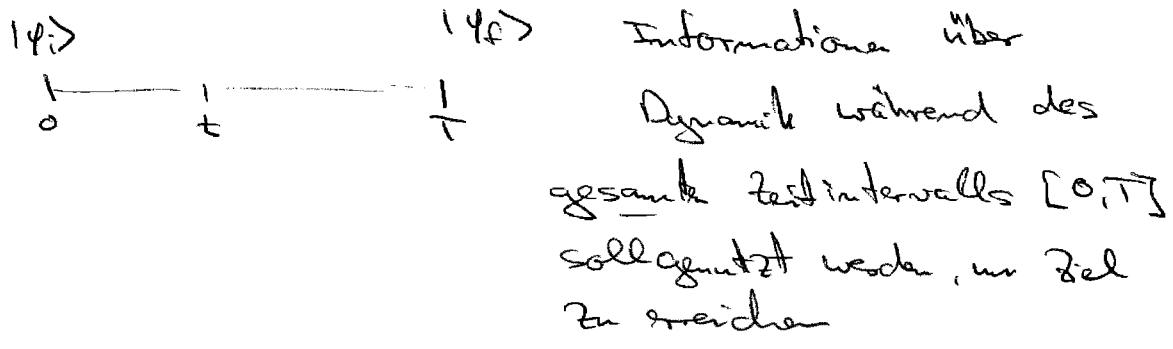 |φi> |φf> Informationen über
0 t T Dynamik während des
gesamten Zeitintervalls [0,T]
soll genutzt werden, um Ziel
zu erreichen